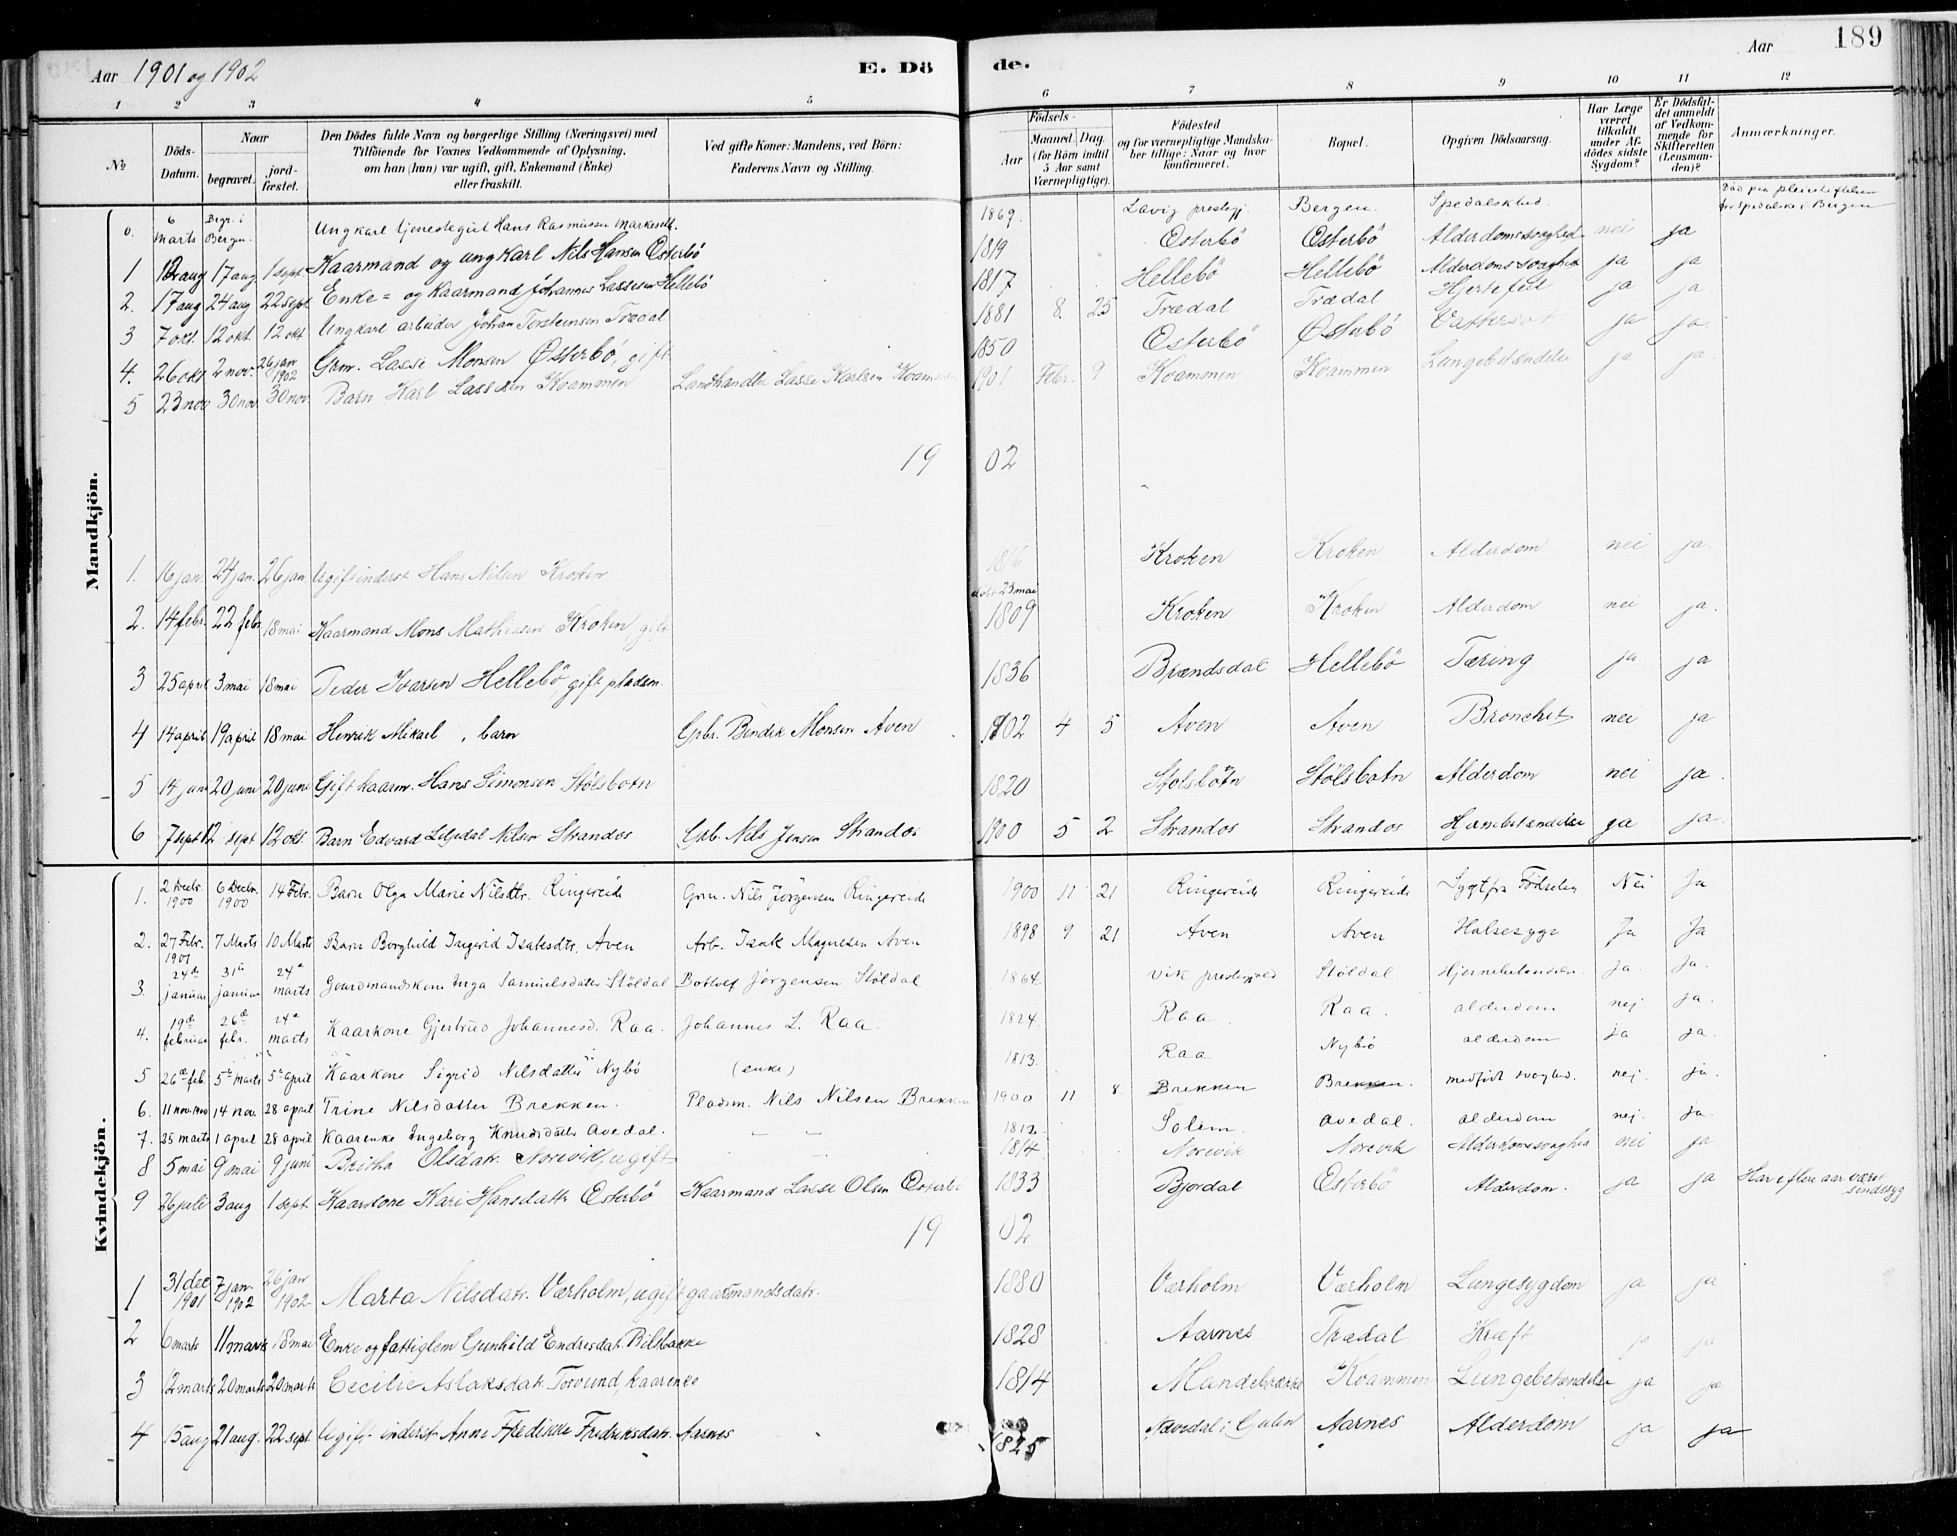 Aar 1901 og 1902 E. Dö de. Aar 189
1 2 3 4 5 6 7 8 9 10 11 12
№ Döds-Datum. Naar begravet. jordfæstet. Den Dödes fulde Navn og borgerlige Stilling (Næringsvei) med Tilföiende for Voxnes Vedkommende af Oplysning, om han (hun) var ugift, gift, Enkemand (Enke) eller fraskilt. Ved gifte Koner: Mandens, ved Börn: Faderens Navn og Stilling. Födsels- Aar Maaned. Dag. (for Börn indtil 5 Aar samt Værnepligtige). Födested og for værnepligtige Mandskaber tillige: Naar og hvor konfirmeret. Bopæl. Opgiven Dödsaarsag. Har Læge været tilkaldt under Afdödes sidste Sygdom? Er Dödsfaldet anmeldt af Vedkommende for Skifteretten (Lensmanden)? Anmærkninger.
Mandkjön.
0. 6 Marts Begr. i Bergen. Ungkarl tjenestegut Hans Rasmussen 1869. Lavig prestegj. Bergen. Spedalskhed. Död paa pleiestiftelsen for spedalske i Bergen
1 12 aug 17 aug 1 sept Kaarmand og ungkarl Nils Hansen Österbö 1819 Österbö Österbö Alderdomssvaghed nei ja
2. 17 aug 24 aug 22 sept Enke= og kaarmand Johannes Lassesen Hellebö 1817 Hellebö Hellebö Alderdomssvaghed ja ja
3 7 okt. 12 okt. 12 okt Ungkarl arbeider Johan Torsteinsen Trædal 1881 8. 25 Trædal Trædal Hjertefeil ja ja.
4. 26 okt 2 nov. 26 jan 1902 Grm. Lasse Monsen Österbö, gift 1850 Österbö Österbö Vattersot ja ja.
5 23 nov 30 nov. 30 nov. Barn Karl Lassesen Kvammen Landhandler Lasse Karlsen Kvammen 1901 Febr. 9 Kvammen Kvammen Lungebetændelse ja ja.
1902
1. 16 jan. 24 jan. 26 jan. Ugift inderst Hans Nilsen Kroken 1816 Kroken Kroken Alderdom nei ja.
2. 14 febr. 22 febr 18 mai Kaarmand Mons Mathiasen Kroken, gift 23 mai 1809 Kroken Kroken Alderdom nei ja.
3 25 april 3 mai 18 mai Peder Ivarsen Hellebö, gift pladsm. 1836 Brændsdal Hellebö Tæring ja ja
4 14 april 19 april 18 mai Henrik Mikael, barn Grbr. Bendik Monsen Aven 1902 4 5 Aven Aven Bronchit nei ja
5 14 juni 20 juni 20 juni Gift kaarm. Hans Simonsen Stölsbotn 1820 Stölsbotn Stölsbotn Alderdom nei ja.
6 7 sept 12 sept 12 okt. Barn Edvard Liljedal Nilsen Strandos Grb. Nils Jensen Strandos 1900 5 2 Strandos Strandos Hjernebetændelse ja ja.
Kvindekjön.
1. 2 Decbr. 1900 6 Decbr. 1900 14 Febr. Barn Olga Marie Nilsdtr. Ringereide Grm. Nils Jörgensen Ringereide 1900 11 21 Ringereide Ringereide Sygt fra Födselen Nei Ja
2. 27 Febr. 1901 7 Marts 10 Marts Barn Borghild Ingerid Isaksdtr. Aven Arb. Isak Magnesen Aven 1898 9 21 Aven Aven Halsesyge Ja Ja
3. 24de januar 31te januar 24de marts Gaardmandskone Inga Samuelsdatter Stöldal Bottolf Jörgensen Stöldal 1864. Vik prestegjeld Stöldal. Hjernebetændelse. Ja. Ja.
4. 19de februar 26de febr. 24de marts Kaarkone Gjertrud Johannesd. Raa. Johannes L. Raa. 1824. Raa. Raa. alderdom nej ja.
5 26de feb. 5te marts 5te april Kaarkone Sigrid Nilsdatter Nybö (enke) 1813. Raa Nybö alderdom ja ja.
6. 11 nov. 1900 14 nov. 28 april Trine Nilsdatter Brekken. Pladsm. Nils Nilsen Brekken 1900 11 8. Brekken Brekken. medfödt svaghed. nej. ja.
7. 25 marts 1 april 28 april Kaarenke Ingeborg Knudsdatter Avedal. — — 1812. Solem. Avedal. alderdom nej. ja.
8 5 mai 9 mai 9 juni Britha Olsdatr. Norevik, ugift 1814 Norevik Norevik Alderdomssvaghed nei ja.
9 26 juli 3 aug 1 sept. Kaarkone Kari Hansdattr Österbö Kaarmand Lasse Olsen Österbö 1833 Bjordal Österbö Alderdom. ja ja Har i flere aar været sindssyg
1902
1 31 dec 1901 7 jan. 1902 26 jan 1902 Marta Nilsdatr. Værholm, ugift gaarmandsdatr. 1880 Værholm Værholm Lungesygdom ja ja
2 6 marts 11 marts 18 mai Enke og fattiglem Gunhild Endresdatr. Bilsbakke 1828 Aarnes Trædal Kræft ja ja
3 12 marts 20 marts 20 marts Cecilie Aslaksdatr. Torvund, kaarenke 1814 Kvammen Lungebetændelse ja ja
4 15 aug 21 aug. 22 sept. Ugift inderst Anne Fredikke Fredriksdatr. Aarnes 1825 Nævedal i Gulen Aarnes Alderdom ja ja